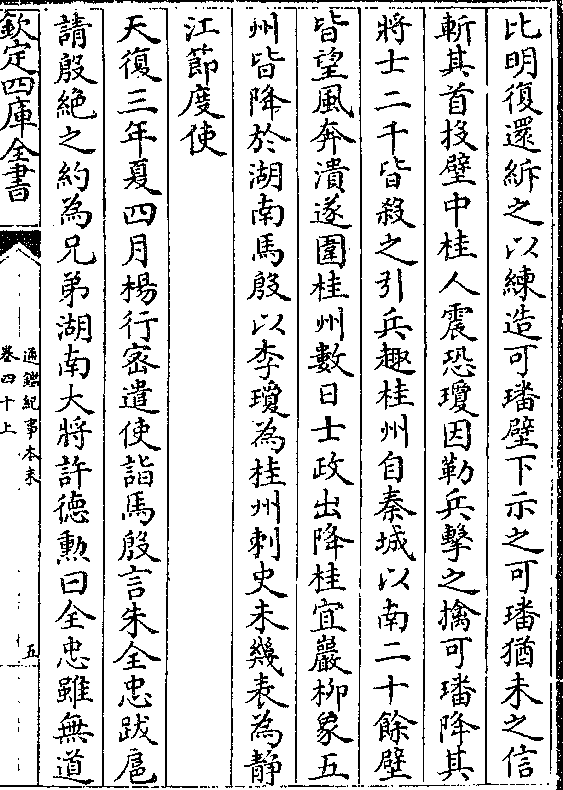 比明復還紤之以練造可璠壁下示之可璠猶未之信
斬其首投壁中桂人震恐瓊因勒兵擊之擒可璠降其
將士二千皆殺之引兵趣桂州自秦城以南二十餘壁
皆望風奔潰遂圍桂州數日士政出降桂宜巖柳象五
州皆降於湖南馬殷以李瓊為桂州刺史未幾表為静
江節度使
天復三年夏四月楊行密遣使詣馬殷言朱全忠跋扈
請殷絶之約為兄弟湖南大將許德勲曰全忠雖無道
欽定四庫全書
通鑑紀事本末
卷四十上
五